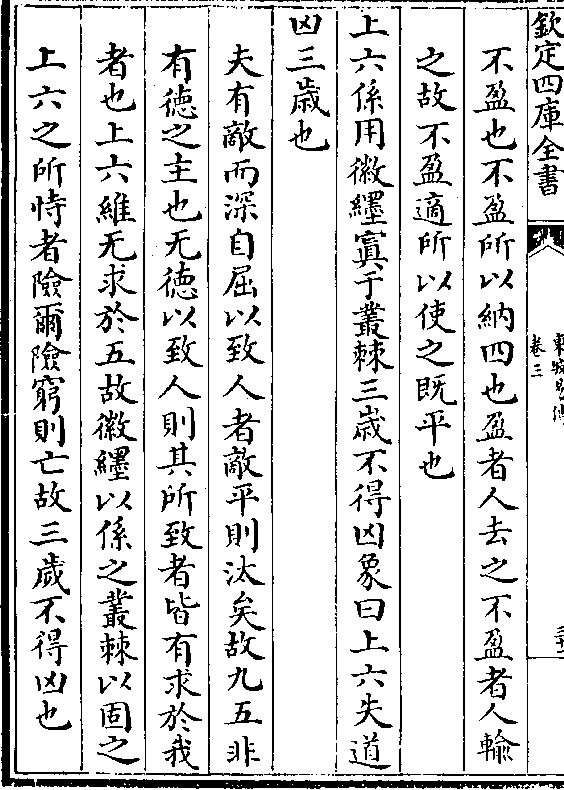 欽定四庫全書
東坡易傳
卷三
三十二
不盈也不盈所以納四也盈者人去之不盈者人輸
之故不盈適所以使之既平也
上六係用徽纆寘于叢棘三歳不得凶象曰上六失道
凶三歳也
夫有敵而深自屈以致人者敵平則汰矣故九五非
有徳之主也无徳以致人則其所致者皆有求於我
者也上六維无求於五故徽纆以係之叢棘以固之
上六之所恃者險爾險窮則亡故三歳不得凶也